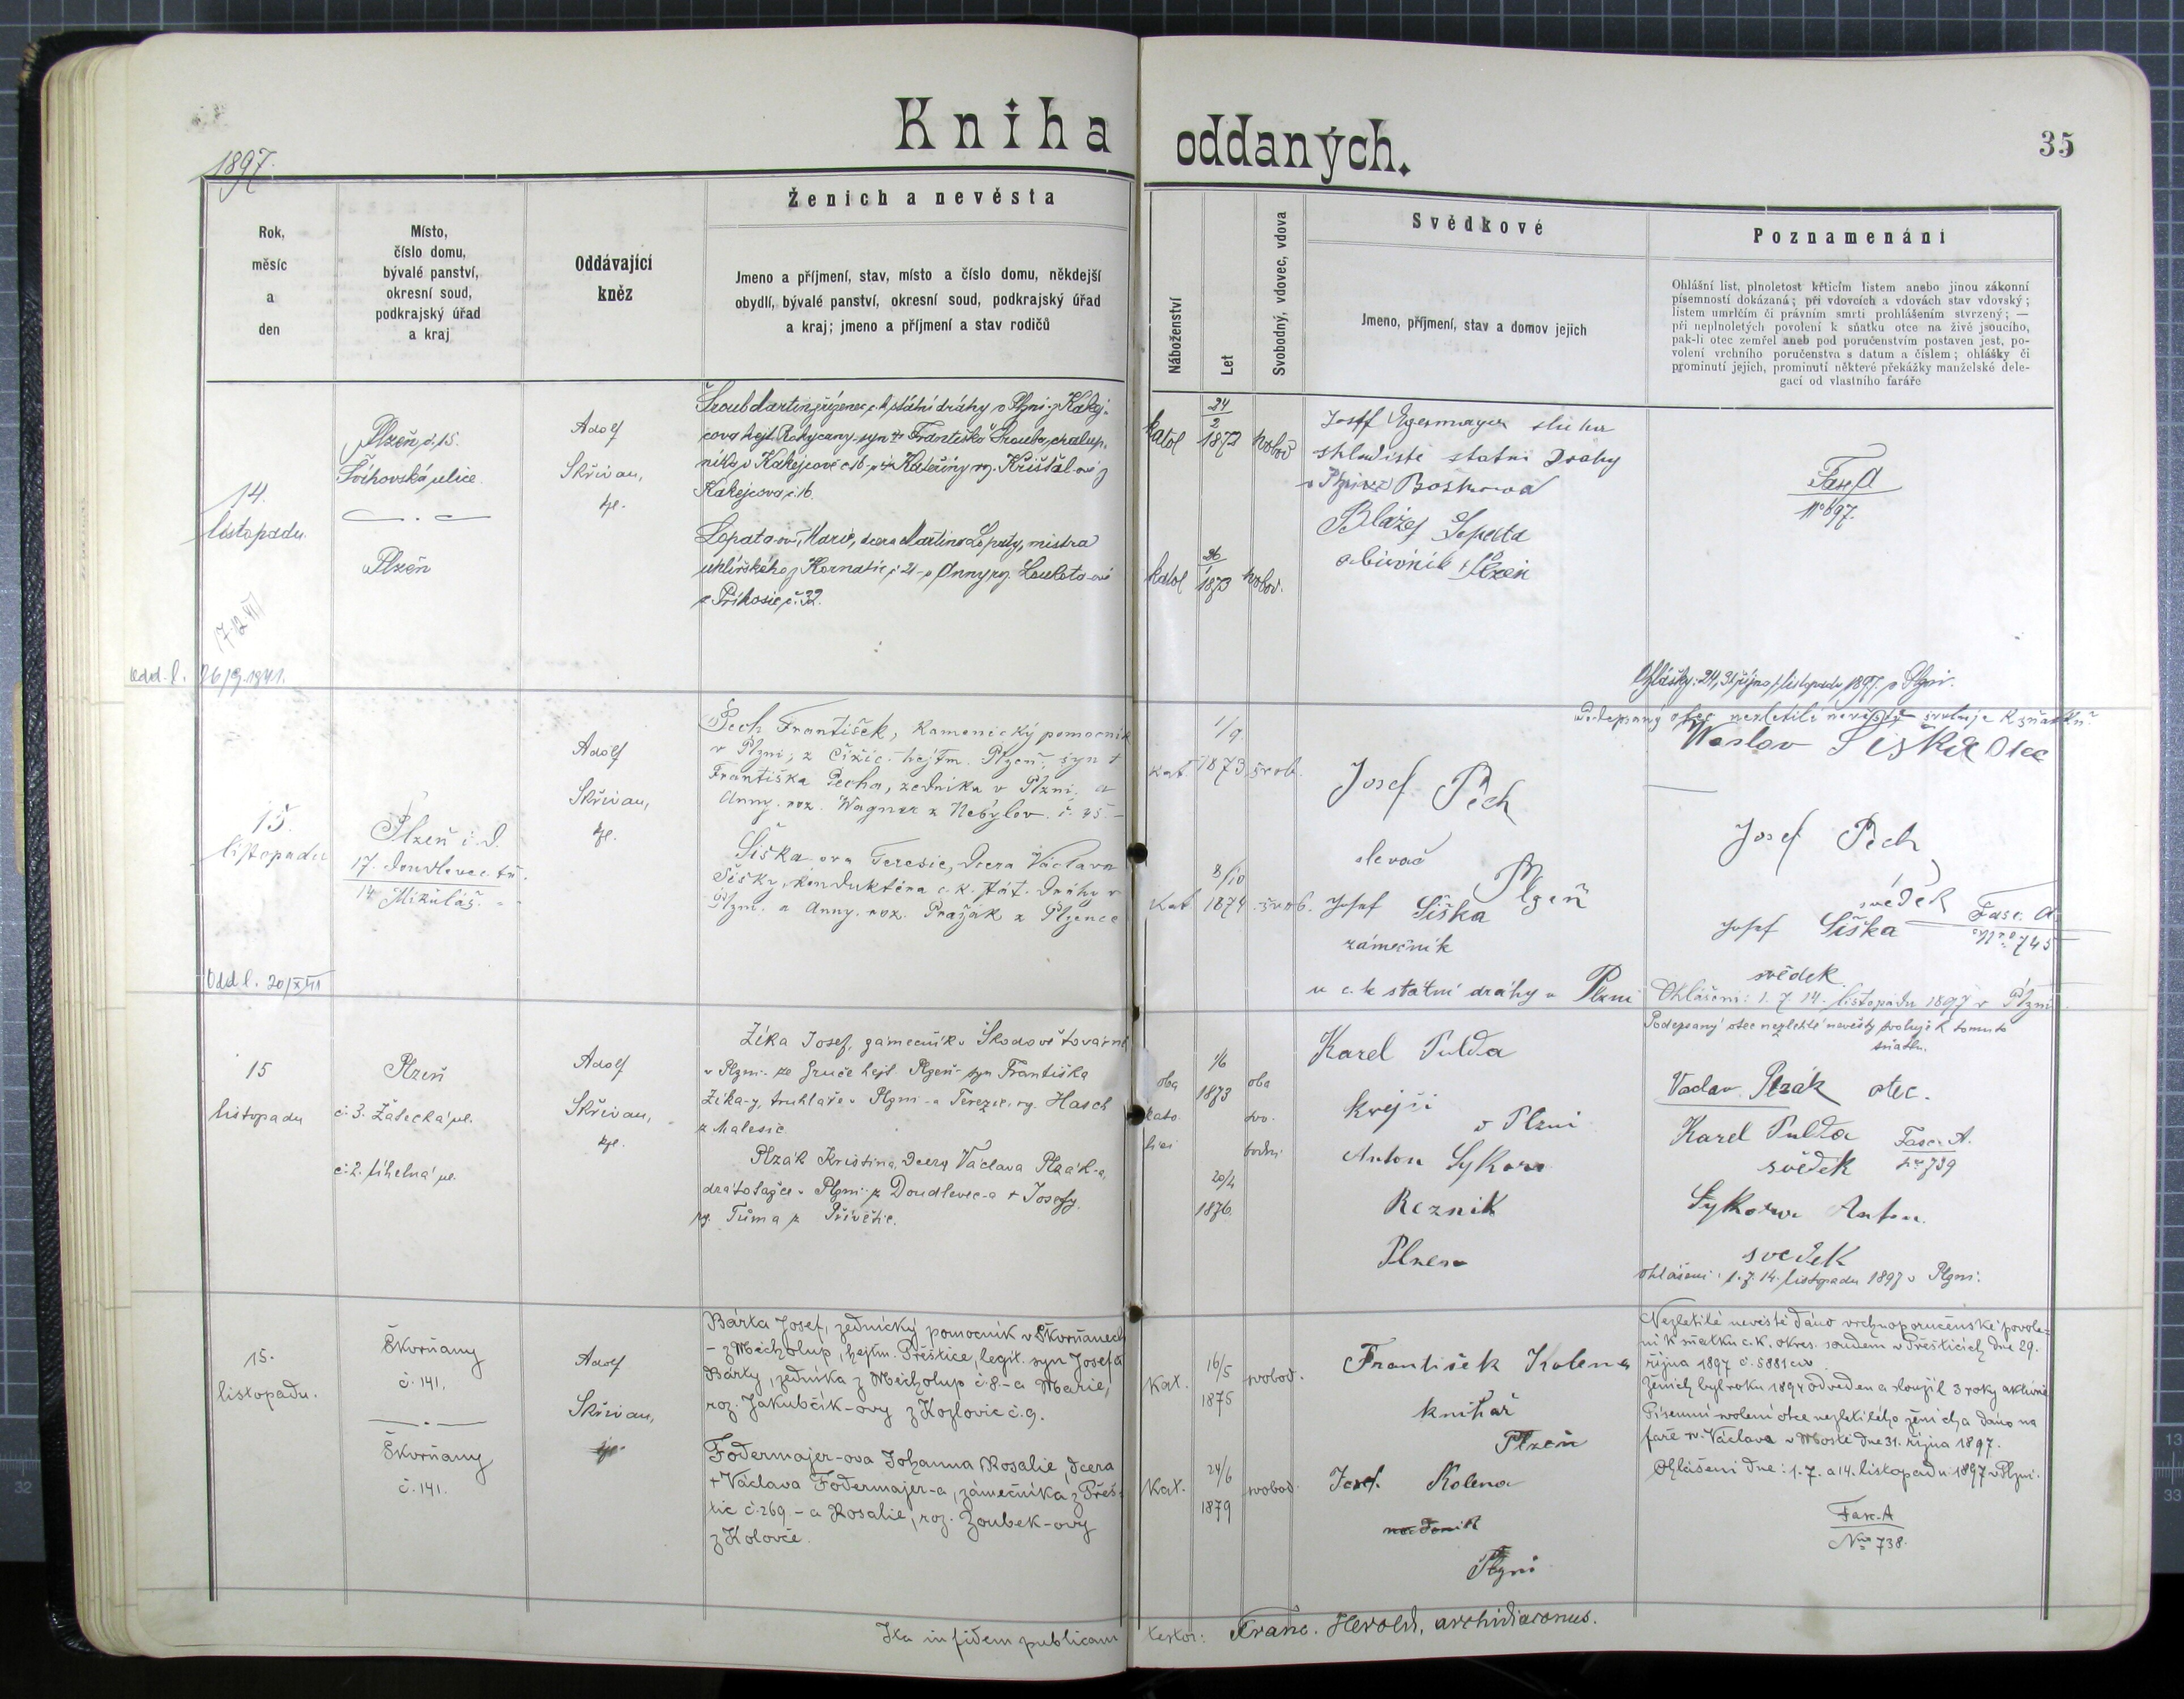 Kniha oddaných.
35
1897.
Ženich a nevěsta
Svědkové
Poznamenání
Rok,
měsíc
a
den
Místo,
číslo domu,
bývalé panství,
okresní soud,
podkrajský úřad
a kraj
Oddávající
kněz
Jmeno a příjmení, stav, místo a číslo domu, někdejší
obydlí, bývalé panství, okresní soud, podkrajský úřad
a kraj; jmeno a příjmení a stav rodičů
Náboženství
Let
Svobodný, vdovec, vdova
Jmeno, příjmení, stav a domov jejich
Ohlášní list, plnoletost křticím listem anebo jinou zákonní
písemností dokázaná; při vdovcích a vdovách stav vdovský;
listem umrlčím či právním smrti prohlášením stvrzený; —
při neplnoletých povolení k sňatku otce na živě jsoucího,
pak-li otec zemřel aneb pod poručenstvím postaven jest, po-
volení vrchního poručenstva s datum a číslem; ohlášky či
prominutí jejich, prominutí některé překážky manželské dele-
gací od vlastního faráře
14.
listopadu
Plzeň, č. 15.
ulice
Plzeň
Adolf
Skřivan,
kpl.
Šroub Martin, zřízenec c. k. státní dráhy v Plzni z Kakej-
cova hejt. Rokycany syn Františka Šrouba, chalup-
níka v Kakejcově č. 16
Kakejcova č. 16.
Lopata-ova Marie, dcera Martina Lopaty, mistra
uhlířského z Kornatic č. 21 a Anny roz. Loukota-ové
z Příkosic č. 32.
katol
24/2
1872
svobod
katol
26/
1873
svobod.
Josef Egermayer sluha
skladiště statni Drahy
v Plzni
Blažej Lopata
Plzeň
Fasc. A
No 697.
17.12.
Odd. l. 26/9.1941.
Ohlášky: 24, 31 října, 7 listopadu 1897. v Plzni.
15.
listopadu
Plzeň i. d.
17. Doudlevec. tř.
14 Mikuláš. "
Adolf
Skřivan,
kpl.
Pech František, kamenický pomocník
v Plzni; z Čižic. hejtm. Plzeň; syn †
Františka Pecha, zedníka v Plzni. a
Anny. roz. Wagner z Nebylov. č. 45. -
Šiška-ova Teresie, dcera Václava
Šišky, konduktéra c. k. stát. dráhy v
Plzni. a Anny. roz. Pražák z Plzence
kat.
1/9.
1873
svob.
Kat.
8/10
1874.
svob.
Josef Pech
slevač
Plzeň
Josef Šiška
zámečník
u c. k statní dráhy v Plzni
Podepsaný otec nezletilé nevěsty svoluje k sňatku.
Waslav Šiška otec
Josef Pech
svědek
Josef Šiška
svědek
Fasc. A.
Nro 745
Odd l. 20/X/41
Ohlášení: 1. 7. 14. listopadu 1897 v Plzni.
15
listopadu
Plzeň
č. 3. Žatecká ul.
č. 2. Cihelná ul.
Adolf
Skřivan,
kpl.
Zika Josef, zámečník v Škodově továrně
v Plzni - ze Hruče hejt. Plzeň - syn Františka
Zika-y, truhláře v Plzni - a Terezie, rz. Hasch
z Malesic
Plzák Kristina, dcera Václava Plzák-a,
v Plzni z Doudlevec - a † Josefy,
rz. Tůma z Přívětic.
oba
kato
lici
1/6
1873
20/4
1876
oba
svo.
bodni
Karel Pulda
krejči
v Plzni
Anton Sykora
Reznik
Plzen
Podepsaný otec nezletilé nevěsty svoluje k tomuto
sňatku.
Vaclav Plzák otec.
Karel Pulda
svědek
Fasc. A.
Nro 739
Sykora Anton.
svedek
Ohlášení: 1. 7. 14. listopadu 1897 v Plzni.
15.
listopadu.
Škvrňany
č. 141.
Škvrňany
č. 141.
Adolf
Skřivan,
kpl.
Bárta Josef, zednický pomocník v Škvrňanech
- z Měcholup, hejtm. Přeštice, legit. syn Josefa
Bárty, zedníka z Měcholup č. 8. - a Marie,
roz. Jakubčík-ovy z Kozlovic č. 9.
Fodermajer-ova Johanna Rosalie, dcera
† Václava Fodermajer-a, zámečníka z Přeš-
tic č. 269 - a Rosalie, roz. Zoubek-ovy
z Koloveč.
Kat.
16/5
1875
svobod.
Kat.
24/6
1879
svobod.
František Kolena
knihař
Plzeň
Josef. Kolena
Plzni
Nezletilé nevěstě dáno vrchnoporučenské povole-
ní k sňatku c. k. okres. soudem v Přešticích dne 29.
října 1897 č. 5881 civ.
Ženich byl roku 1894 odveden a sloužil 3 roky aktivně
Písemní svolení otce nezletilého ženicha dáno na
faře sv. Václava v Mostě dne 31. října 1897.
Ohlášení dne: 1. 7. a 14. listopadu 1897 v Plzni.
Fasc. A
Nro 738.
Ita in fidem publicam testor: Franc. Herold, archidiaconus.